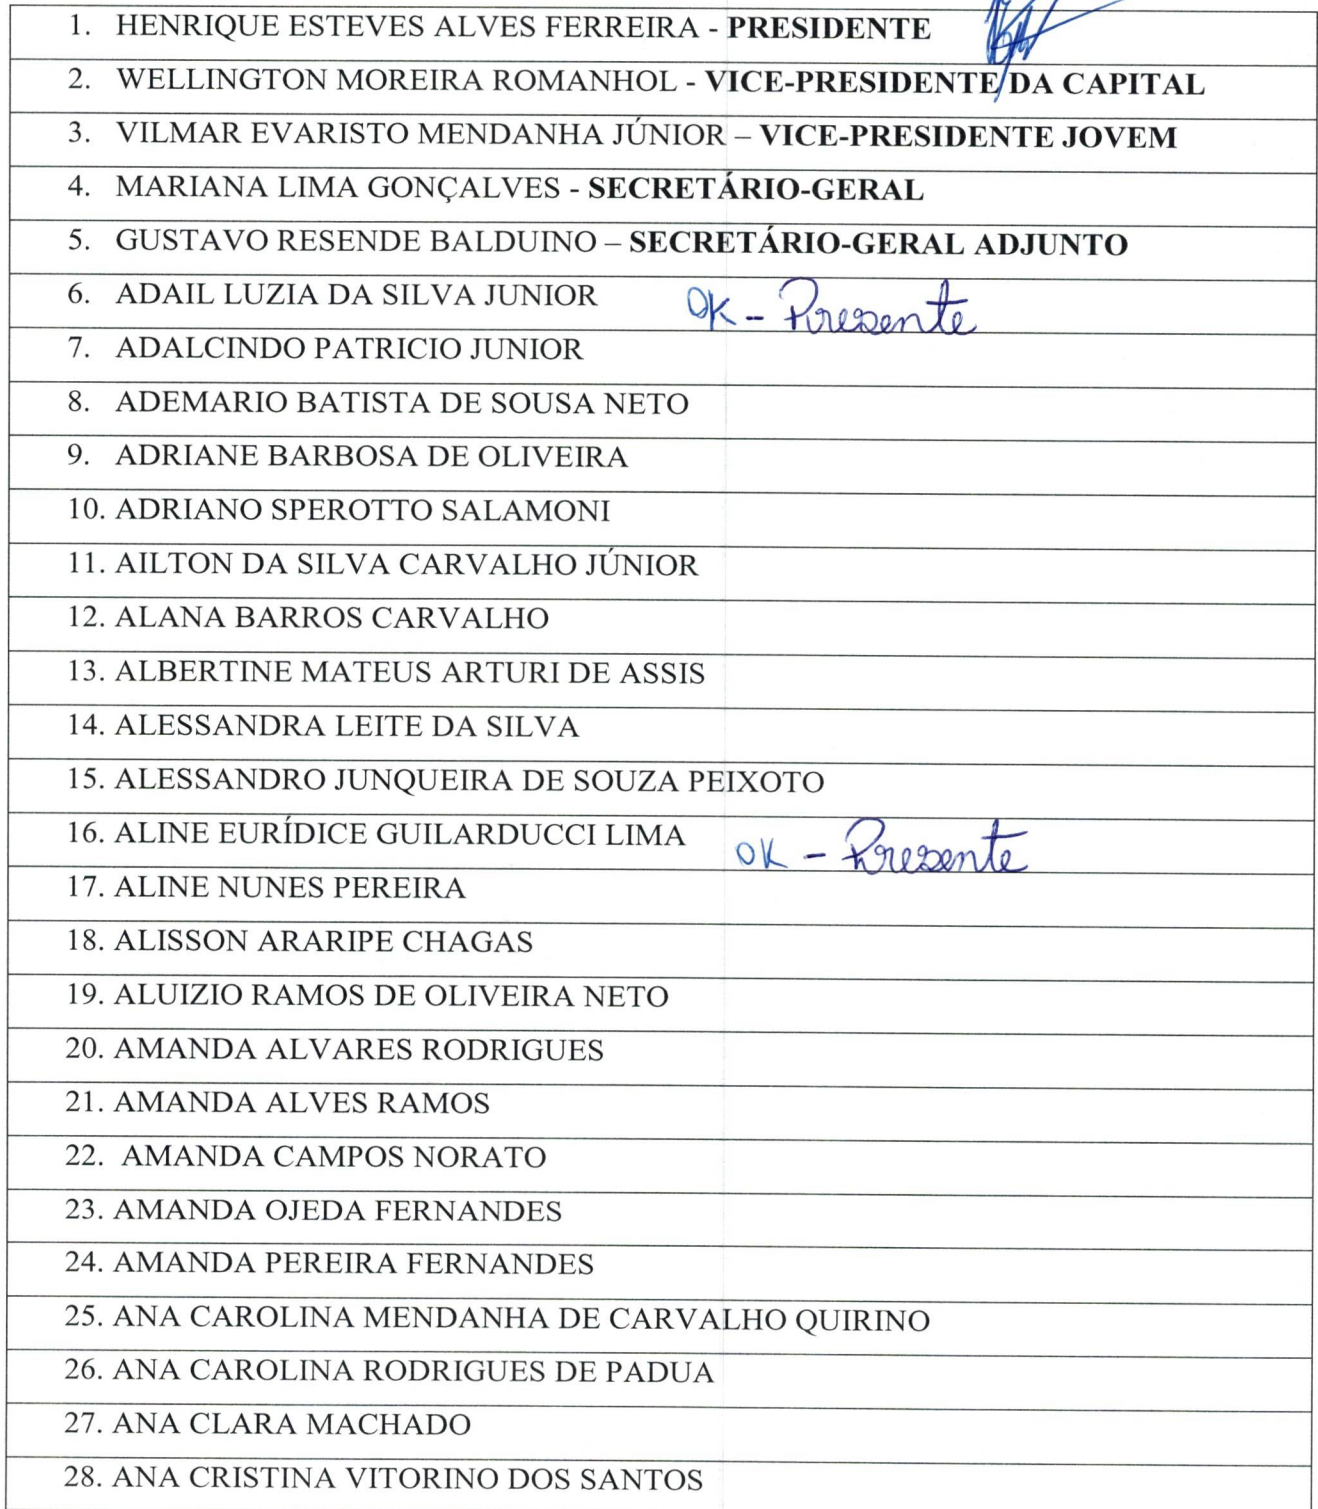 1. HENRIQUE ESTEVES ALVES FERREIRA - PRESIDENTE
2. WELLINGTON MOREIRA ROMANHOL - VICE-PRESIDENTE DA CAPITAL
3. VILMAR EVARISTO MENDANHA JÚNIOR – VICE-PRESIDENTE JOVEM
4. MARIANA LIMA GONÇALVES - SECRETÁRIO-GERAL
5. GUSTAVO RESENDE BALDUINO – SECRETÁRIO-GERAL ADJUNTO
6. ADAIL LUZIA DA SILVA JUNIOR OK - Presente
7. ADALCINDO PATRICIO JUNIOR
8. ADEMARIO BATISTA DE SOUSA NETO
9. ADRIANE BARBOSA DE OLIVEIRA
10. ADRIANO SPEROTTO SALAMONI
11. AILTON DA SILVA CARVALHO JÚNIOR
12. ALANA BARROS CARVALHO
13. ALBERTINE MATEUS ARTURI DE ASSIS
14. ALESSANDRA LEITE DA SILVA
15. ALESSANDRO JUNQUEIRA DE SOUZA PEIXOTO
16. ALINE EURÍDICE GUILARDUCCI LIMA OK - Presente
17. ALINE NUNES PEREIRA
18. ALISSON ARARIPE CHAGAS
19. ALUIZIO RAMOS DE OLIVEIRA NETO
20. AMANDA ALVARES RODRIGUES
21. AMANDA ALVES RAMOS
22. AMANDA CAMPOS NORATO
23. AMANDA OJEDA FERNANDES
24. AMANDA PEREIRA FERNANDES
25. ANA CAROLINA MENDANHA DE CARVALHO QUIRINO
26. ANA CAROLINA RODRIGUES DE PADUA
27. ANA CLARA MACHADO
28. ANA CRISTINA VITORINO DOS SANTOS